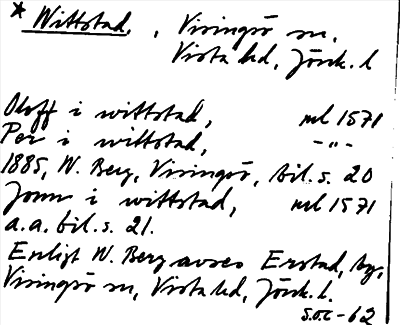 * Wittstad, , Visingsö sn,
Vista hd, Jönk. l
Oloff i wittstad, ml 1571
Per i wittstad, -"-
1885, W. Berg, Visingsö, bil. s. 20
Jonn i wittstad, ml 1571
a.a. bil. s. 21.
Enligt W. Berg avses Erstad, by,
Visingsö sn, Vista hd, Jönk. l.
S.O.C -62